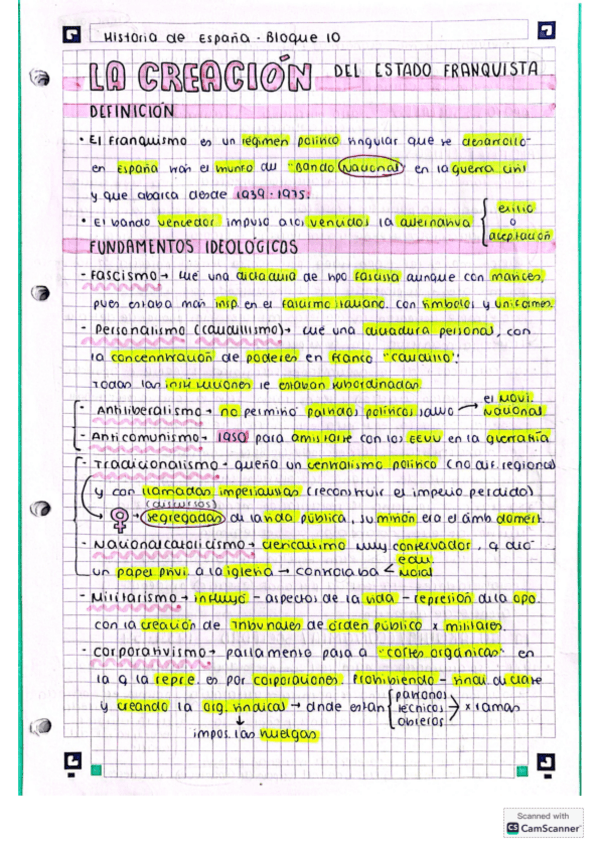 Historia de España - Bloque 10
LA CREACIÓN DEL ESTADO FRANQUISTA
DEFINICIÓN
• El Franquismo es un régimen político singular que se desarrolló
en España tras el triunfo del "Bando Nacional" en la guerra civil
y que abarca desde 1939-1975.
• El bando vencedor impuso a los vencidos la alternativa { exilio
o
aceptación
FUNDAMENTOS IDEOLÓGICOS
- Fascismo → fue una dictadura de tipo fascista aunque con matices,
pues estaba más insp. en el fascismo italiano. con símbolos y uniformes.
- Personalismo (caudillismo) → fue una dictadura personal, con
la concentración de poderes en Franco "caudillo":
todas las instituciones le estaban subordinadas
- Antiliberalismo → no permitió partidos políticos salvo → el Movi.
Nacional
- Anticomunismo → 1950 para amistarse con los EEUU en la guerra fría
- Tradicionalismo - quería un centralismo político (no dif. regional)
y con llamadas imperialistas (reconstruir el imperio perdido)
(discursos)
→ ♀ → segregadas de la vida pública, su misión era el ámb domést.
- Nacionalcatolicismo → clericalismo muy conservador, q dio
un papel privi. a la iglesia → controlaba < edu.
social
- Militarismo → influyó - aspectos de la vida - represión de la opo.
con la creación de Tribunales de orden público x militares.
- Corporativismo → parlamento pasa a "cortes orgánicas" en
la q la repre. es por corporaciones. Prohibiendo - sind. de clase
y creando la org. sindical → dnde están { patronos
técnicos
obreros } x ramas
↓
impos. las huelgas
Scanned with
CS CamScanner